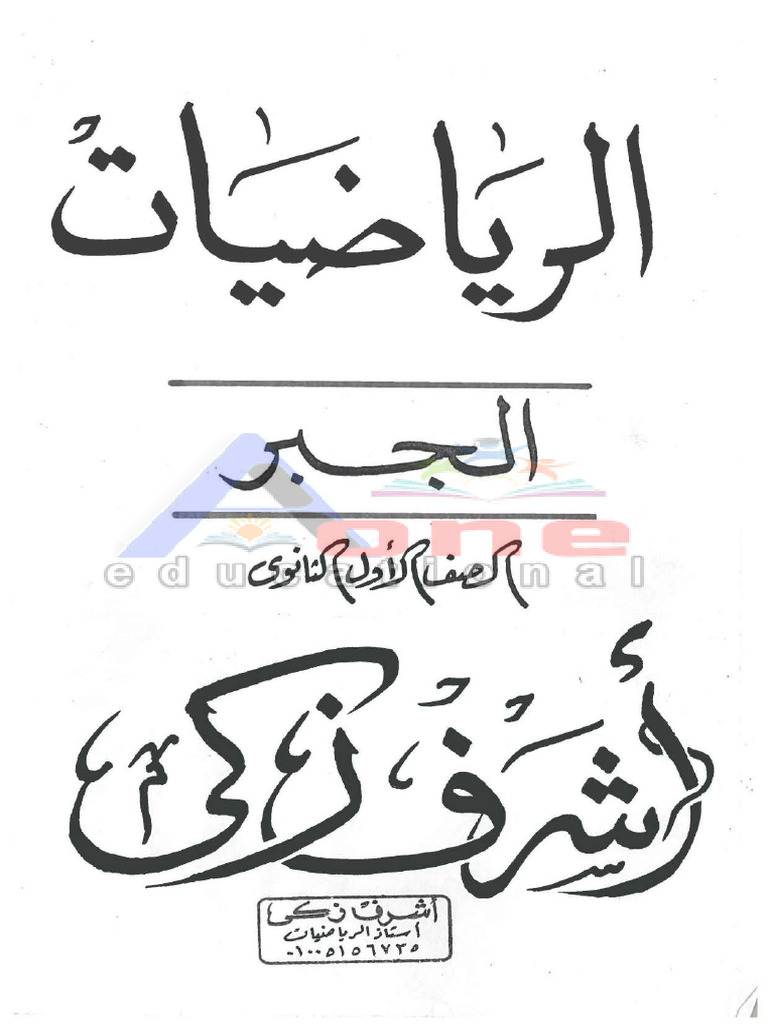 الرياضيات
الجبر
A one
educational
الصف الأول الثانوى
أشرف زكى
أشرف زكى
أستاذ الرياضيات
٠١٠٠٥١٥٦٧٣٥